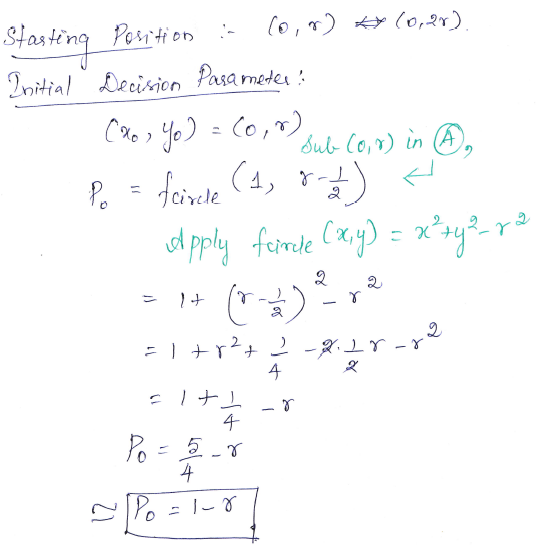 Starting Position :- (0, r) ⇔ (0, 2r).
Initial Decision Parameter :
(x₀, y₀) = (0, r)
Sub (0, r) in Ⓐ,
P₀ = fcircle (1, r - 1/2) ↵
Apply fcircle (x, y) = x² + y² - r²
= 1 + (r - 1/2)² - r²
= 1 + r² + 1/4 - 2 · 1/2 r - r²
= 1 + 1/4 - r
P₀ = 5/4 - r
≃ P₀ = 1 - r